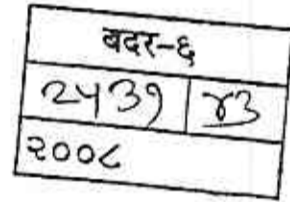 बदर-६
२५३१ ४३
२००८